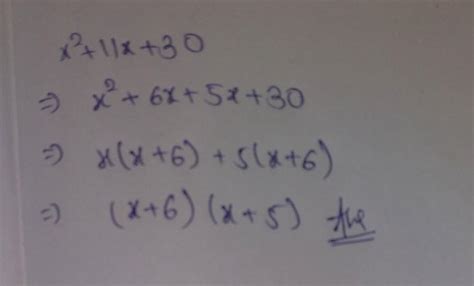 x²+11x+30
⇒ x²+6x+5x+30
⇒ x(x+6)+5(x+6)
⇒ (x+6)(x+5) Ans